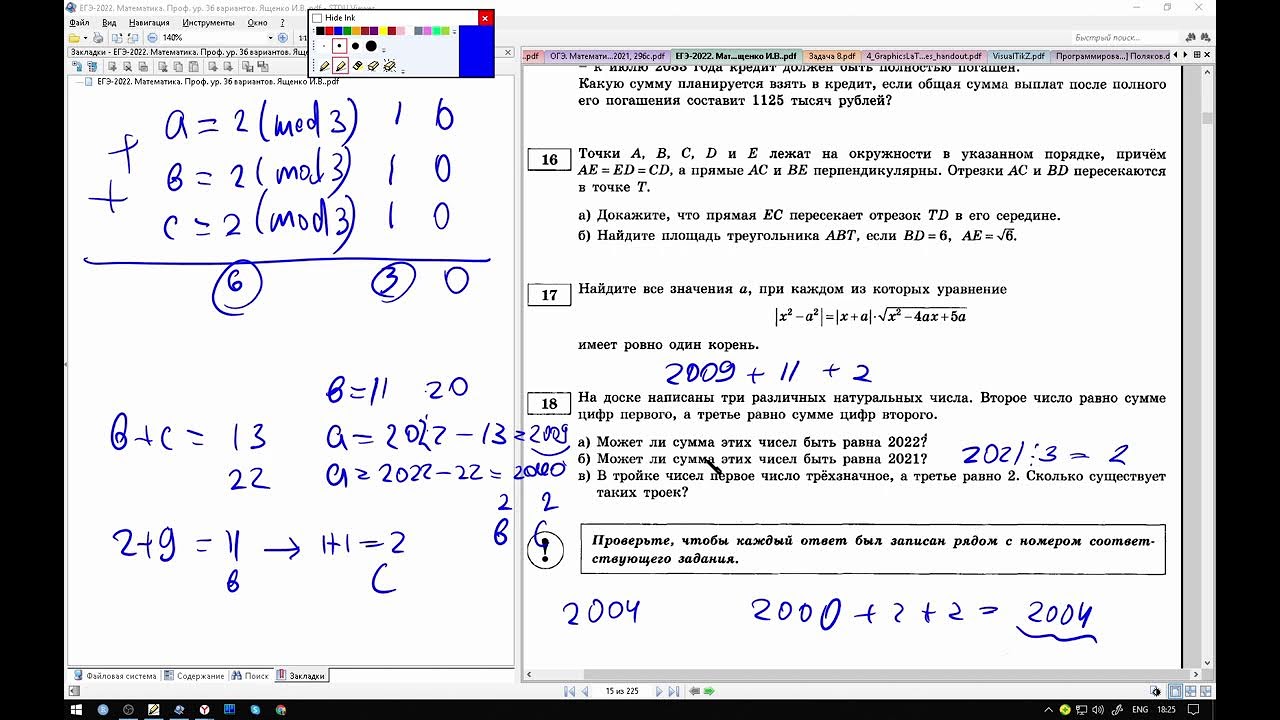 ЕГЭ-2022. Математика. Проф. ур. 36 вариантов. Ященко И.В. - STDU Viewer
Файл Вид Навигация Инструменты Окно ?
140%
Hide Ink
Быстрый поиск...
Закладки - ЕГЭ-2022. Математика. Проф. ур. 36 вариантов. Ященко И.В.pdf
.pdf ОГЭ. Математи...2021, 296с.pdf ЕГЭ-2022. Мат...щенко И.В..pdf Задача 8.pdf 4_GraphicsLaT...es_handout.pdf VisualTikZ.pdf Программирова...] Поляков.d
ЕГЭ-2022. Математика. Проф. ур. 36 вариантов. Ященко И.В..pdf
+ a = 2 (mod 3) 1 0
+ в = 2 (mod 3) 1 0
c = 2 (mod 3) 1 0
6 3 0
в = 11 20
в + c = 13 a = 2022 - 13 = 2009
22 a = 2022 - 22 = 2000
2 2
в c
2+9 = 11 → 1+1 = 2
в c
– к июлю 2033 года кредит должен быть полностью погашен.
Какую сумму планируется взять в кредит, если общая сумма выплат после полного
его погашения составит 1125 тысяч рублей?
16 Точки A, B, C, D и E лежат на окружности в указанном порядке, причём
AE = ED = CD, а прямые AC и BE перпендикулярны. Отрезки AC и BD пересекаются
в точке T.
а) Докажите, что прямая EC пересекает отрезок TD в его середине.
б) Найдите площадь треугольника ABT, если BD = 6, AE = √6.
17 Найдите все значения a, при каждом из которых уравнение
|x² − a²| = |x + a| · √x² − 4ax + 5a
имеет ровно один корень.
2009 + 11 + 2
18 На доске написаны три различных натуральных числа. Второе число равно сумме
цифр первого, а третье равно сумме цифр второго.
а) Может ли сумма этих чисел быть равна 2022?
б) Может ли сумма этих чисел быть равна 2021? 2021 : 3 = 2
в) В тройке чисел первое число трёхзначное, а третье равно 2. Сколько существует
таких троек?
! Проверьте, чтобы каждый ответ был записан рядом с номером соответ-
ствующего задания.
2004 2000 + 2 + 2 = 2004
Файловая система Содержание Поиск Закладки
15 из 225
ENG 18:25